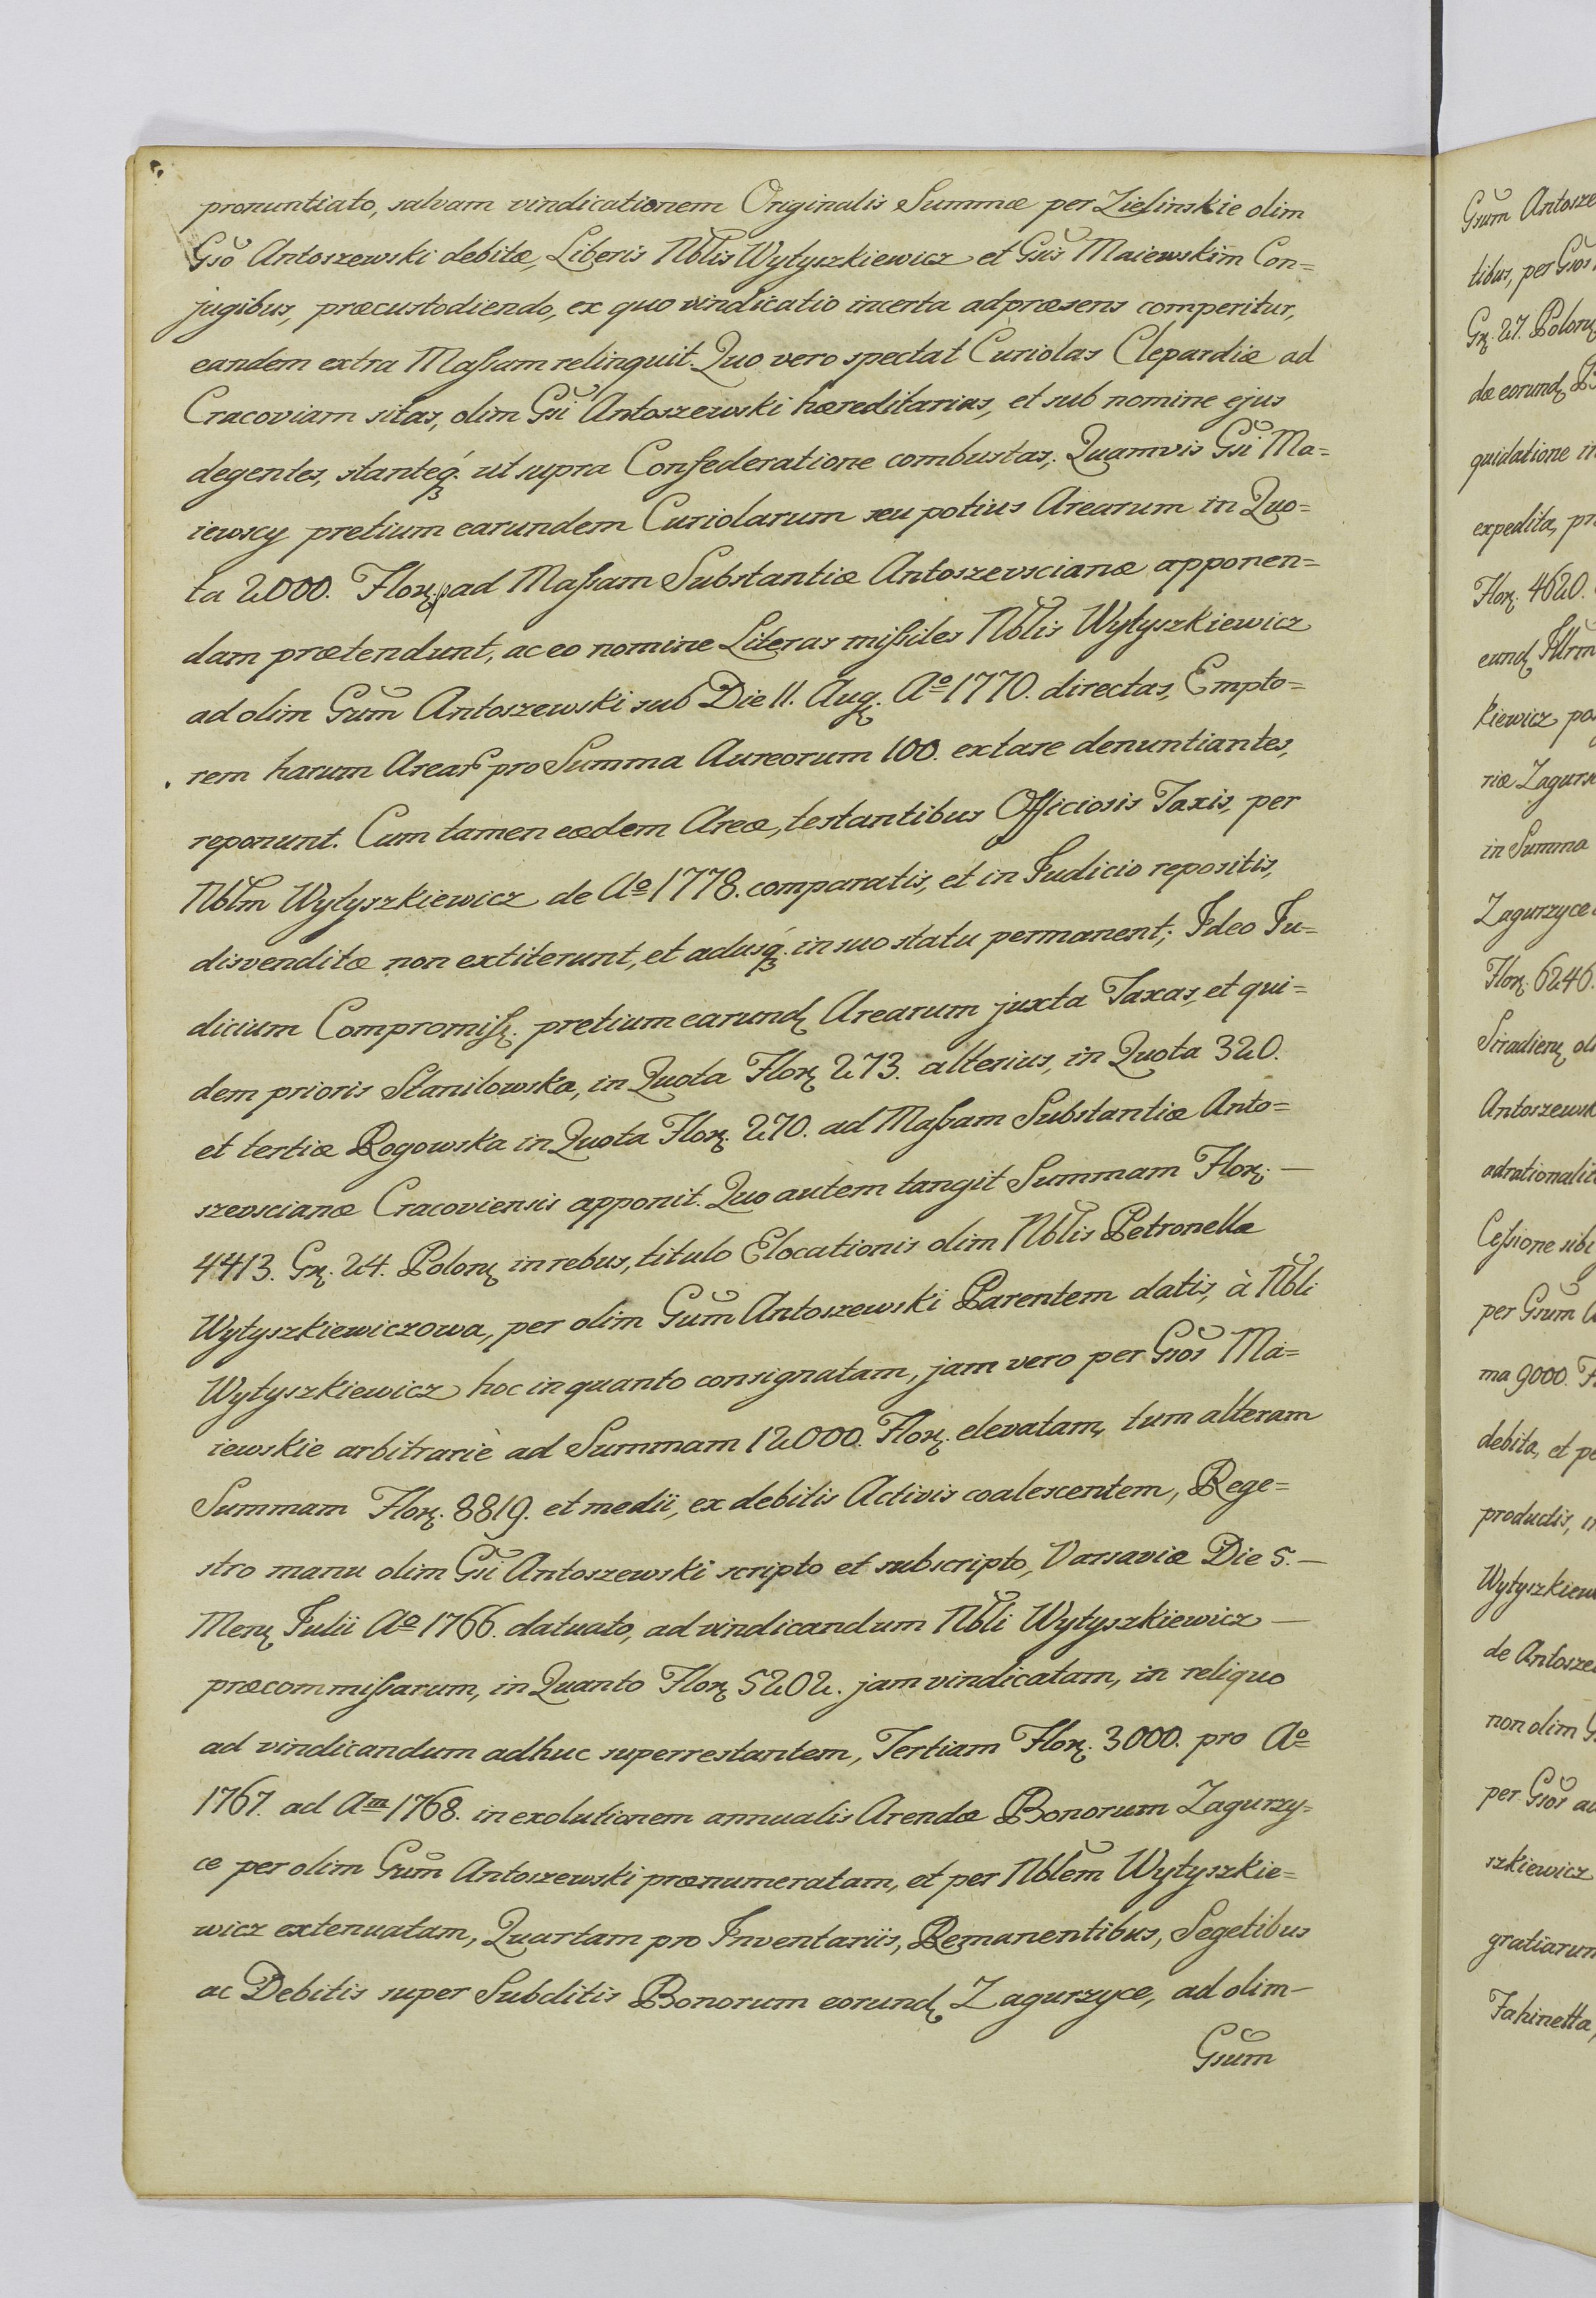 pronuntiato, salvam vindicationem Originalis Summæ per Zielinskie olim
Gsō Antoszewski debitæ, Liberis Nblis Wytyszkiewicz et Gsis Maiewskim Con=
jugibus, præcustodiendo, ex quo vindicatio incerta adpræsens comperitur,
eandem extra Maſsam relinquit. Quo vero spectat Curiolas Clepardiæ ad
Cracoviam sitas, olim Gsi Antoszewski hæreditarias, et sub nomine ejus
degentes, stanteq́ꝫ. ut supra Confederatione combustas; Quamvis Gsi Ma=
iewscy pretium earundem Curiolarum seu potius Arearum in Quo=
ta 2000. Florꝝ. ad Maſsam Substantiæ Antoszevscianæ apponen=
dam prætendunt, ac eo nomine Literas miſsiles Nblis Wytyszkiewicz
ad olim Gsum Antoszewski sub Die 11. Augꝝ. Aº 1770. directas, Empto=
rem harum Arearꝝ pro Summa Aureorum 100. extare denuntiantes,
reponunt. Cum tamen eædem Areæ, testantibus Officiosis Taxis, per
Nblm Wytyszkiewicz de Aº 1778. comparatis, et in Judicio repositis,
disvenditæ non extiterunt, et adusq́ꝫ. in suo statu permanent; Ideo Ju=
dicium Compromiſsꝝ. pretium earundꝝ Arearum juxta Taxas, et qui=
dem prioris Stanilowska, in Quota Florꝝ 273. alterius, in Quota 320.
et tertiæ Rogowska in Quota Florꝝ. 270. ad Maſsam Substantiæ Anto=
szevscianæ Cracoviensis apponit. Quo autem tangit Summam Florꝝ. —
4413. Grꝝ. 24. Polonꝝ in rebus, titulo Elocationis olim Nblis Petronellæ
Wytyszkiewiczowa, per olim Gsum Antoszewski Parentem datis, à Nbli
Wytyszkiewicz hoc in quanto consignatam, jam vero per Gsos Ma=
iewskie arbitrariè ad Summam 12000. Florꝝ. elevatam, tum alteram
Summam Florꝝ. 8819. et medii, ex debitis Activis coalescentem, Rege=
stro manu olim Gsi Antoszewski scripto et subscripto, Varsaviæ Die 5. —
Mensꝝ Julii Aº 1766. datuato, ad vindicandum Nbli Wytyszkiewicz —
præcommiſsarum, in Quanto Florꝝ 5202. jam vindicatam, in reliquo
ad vindicandum adhuc superrestantem, Tertiam Florꝝ. 3000. pro Aº
1767. ad Am 1768. in exolutionem annualis Arendæ Bonorum Zagurzy=
ce per olim Gsum Antoszewski prænumeratam, et per Nblem Wytyszkie=
wicz extenuatam, Quartam pro Inventariis, Remanentibus, Segetibus
ac Debitis super Subditis Bonorum eorundꝝ Zagurzyce, ad olim —
Gsum
Gsum Antosze
tibus, per Gsos
Grꝝ. 27. Polonꝝ
dæ eorundꝝ
quidatione in
expedita, pr
Florꝝ. 4620.
eundꝝ
kiewicz po
riæ Zagurs
in Summa
Zagurzyce
Florꝝ. 6246.
Antoszewsk
adrationalit
Ceſsione sibi
per Gsum A
ma 9000. F
debita, et pe
productis, in
Wytyszkiew
de Antosze
non olim G
per Gsos a
szkiewicz
gratiarum